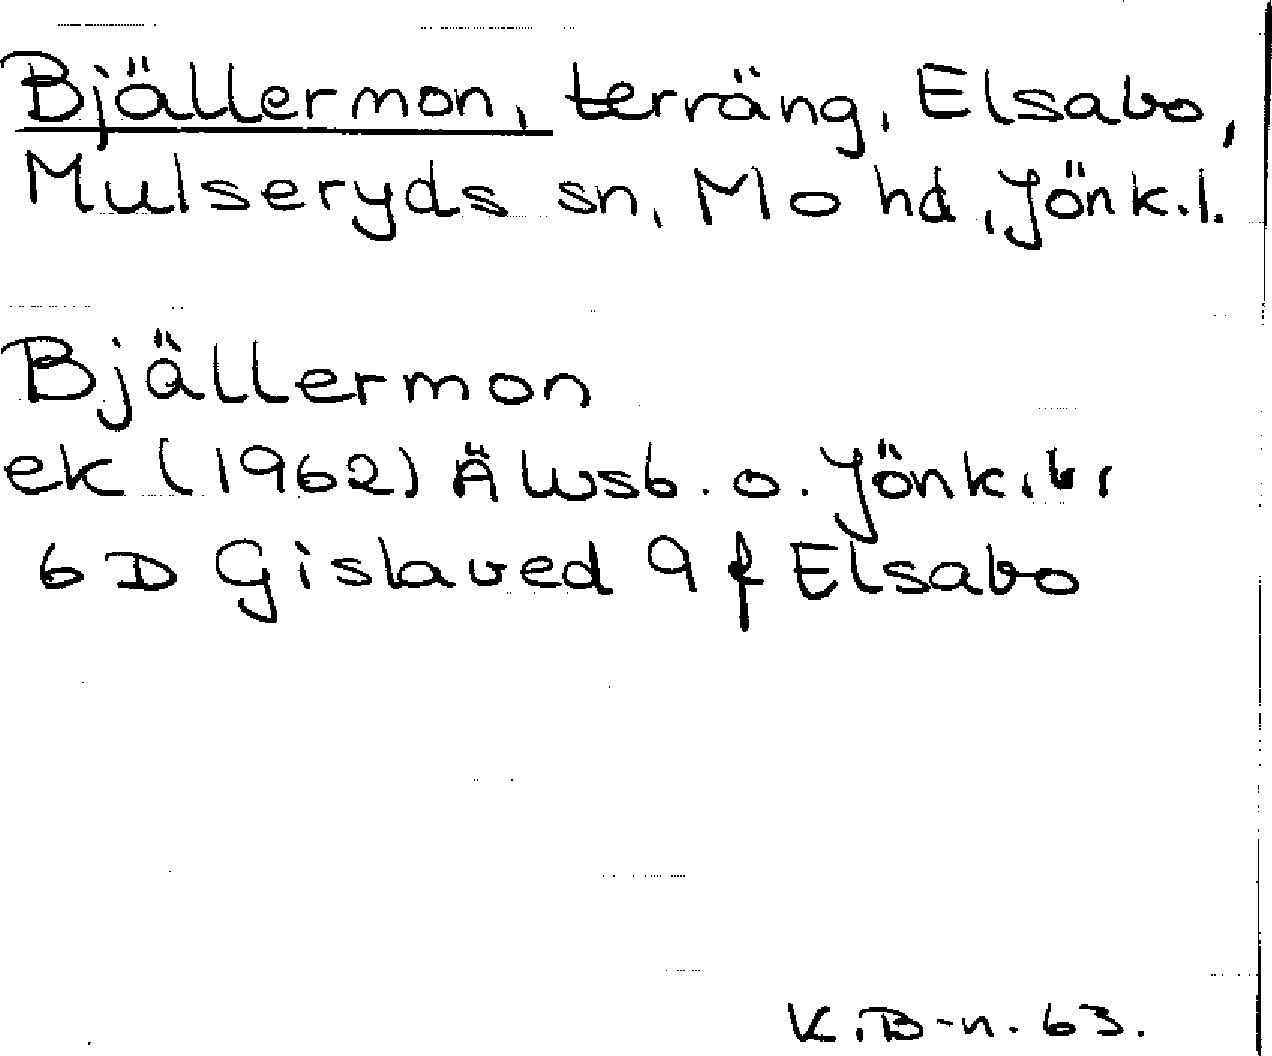 Bjällermon, terräng, Elsabo,
Mulseryds sn, Mo hd, Jönk.l.
Bjällermon
ek (1962) Älvsb. o. Jönk.
6 D Gislaved 9 f Elsabo
K.B-n. 63.